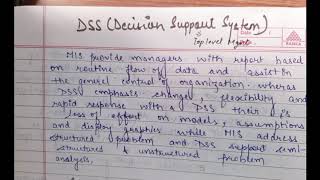 DSS (Decision Support System)
Top level
MIS provide managers with report based
on routine flow of data and assist in
the general control of organization. whereas
DSS emphasis change, flexibility and
rapid response with a DSS their is
less of effort on models, assumptions
and display graphics while MIS address
structured problem and DSS support semi-
structured & unstructured problem
analysis.